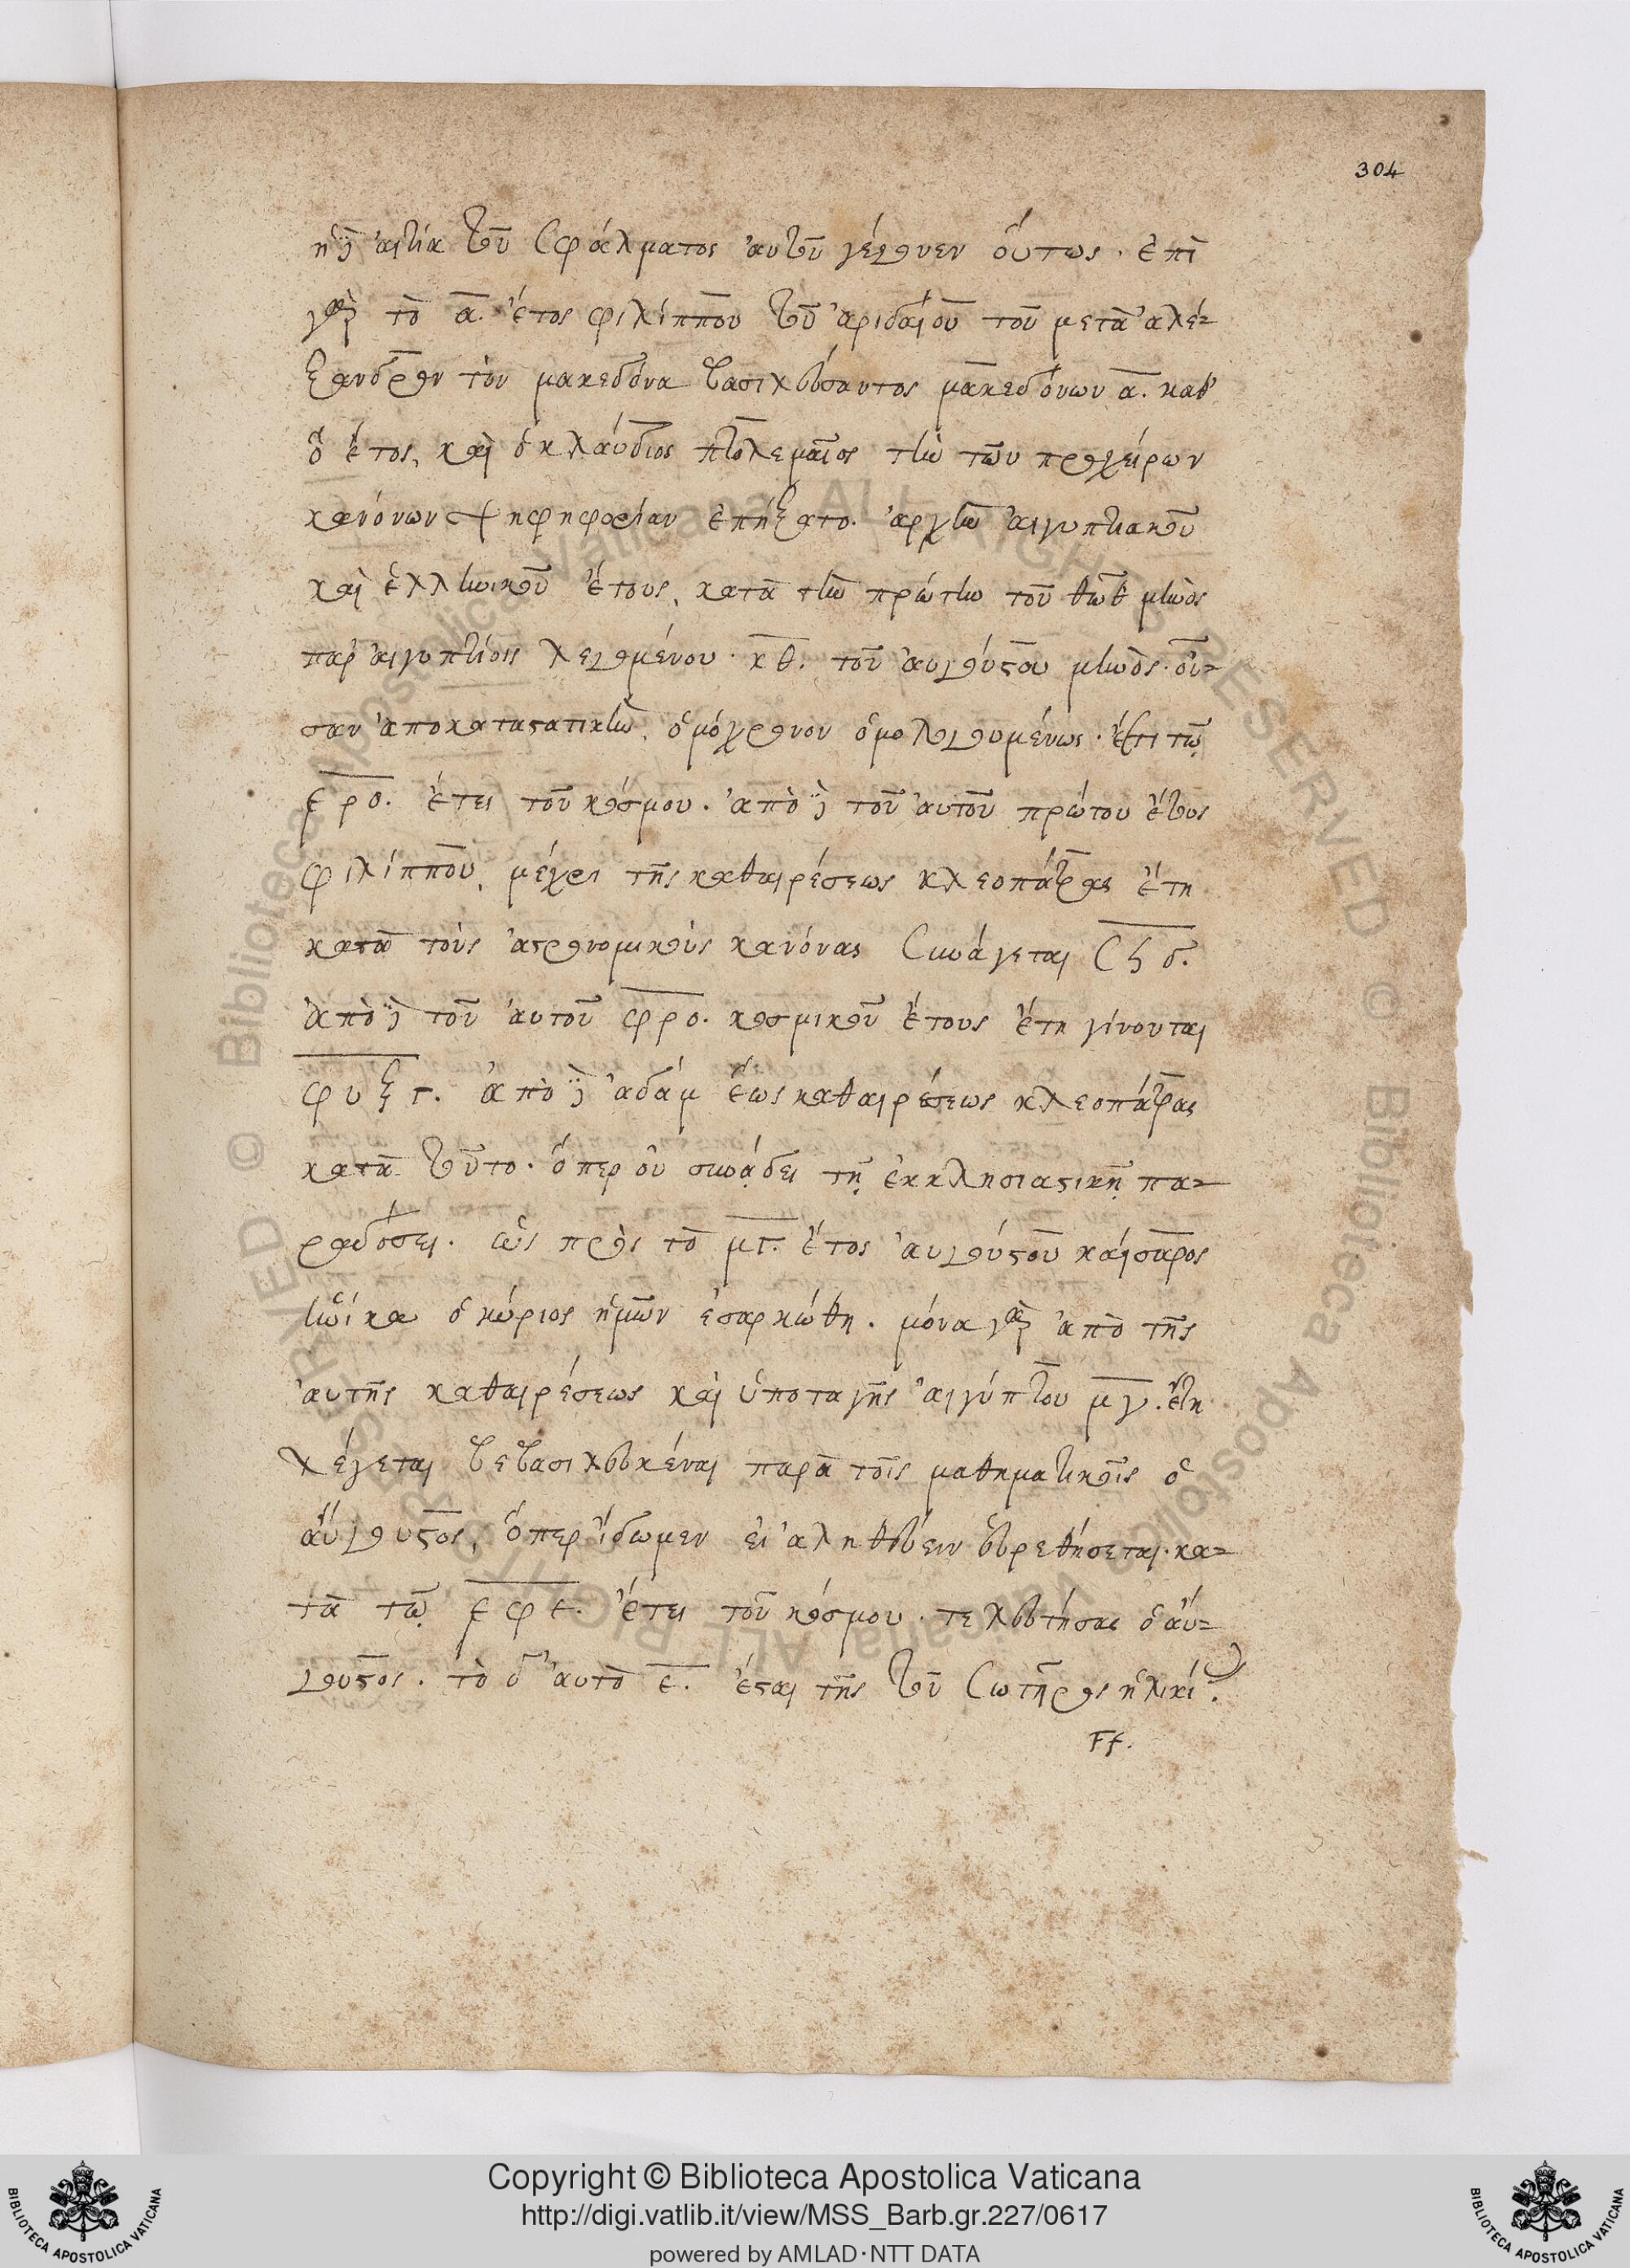 304
ἡ δὲ αἰτία τοῦ σφάλματος αὐτοῦ γέγονεν οὕτως· ἐπὶ
γὰρ τὸ α. ἔτος φιλίππου τοῦ ἀριδαίου τοῦ μετὰ ἀλέ-
ξανδρον τὸν μακεδόνα βασιλεύσαντος μακεδόνων α. καθ'
ὃ ἔτος, καὶ ὁ κλαύδιος πτολεμαῖος τὴν τῶν προχείρων
κανόνων ψηφηφορίαν ἐπήξατο. ἀρχὴν αἰγυπτιακοῦ
καὶ ἑλληνικοῦ ἔτους, κατὰ τὴν πρώτην τοῦ θὼθ μηνὸς
παρ' αἰγυπτίοις λεγομένου. κθ. τοῦ αὐγούστου μηνὸς. οὖ-
σαν ἀποκαταστατικὴν, ὁμόχρονον ὁμολογουμένως. ἐπὶ τῷ
ερο. ἔτει τοῦ κόσμου. ἀπὸ δὲ τοῦ αὐτοῦ πρώτου ἔτους
φιλίππου, μέχρι τῆς καθαιρέσεως κλεοπάτρας ἔτη
κατὰ τοὺς ἀστρονομικοὺς κανόνας συνάγεται σϟδ.
ἀπὸ δὲ τοῦ αὐτοῦ ερο. κοσμικοῦ ἔτους ἔτη γίνονται
ευξγ. ἀπὸ δὲ ἀδάμ ἕως καθαιρέσεως κλεοπάτρας
κατὰ τοῦτο. ὅπερ οὐ συνᾴδει τῇ ἐκκλησιαστικῇ πα-
ραδόσει. ὡς πρὸς τὸ μγ. ἔτος αὐγούστου καίσαρος
ἡνίκα ὁ κύριος ἡμῶν ἐσαρκώθη. μόνα γὰρ ἀπὸ τῆς
αὐτῆς καθαιρέσεως καὶ ὑποταγῆς αἰγύπτου μγ. ἔτη
λέγεται βεβασιλευκέναι παρὰ τοῖς μαθηματικοῖς ὁ
αὔγουστος, ὅπερ ἴδωμεν εἰ ἀληθεύειν εὑρεθήσεται. κα-
τὰ τῷ εφε. ἔτει τοῦ κόσμου. τελευτήσας ὁ αὔ-
γουστος. τὸ δ' αὐτὸ ε. ἔσται τῆς τοῦ σωτῆρος ἡλικί.
Ff.
Copyright © Biblioteca Apostolica Vaticana
http://digi.vatlib.it/view/MSS_Barb.gr.227/0617
powered by AMLAD·NTT DATA